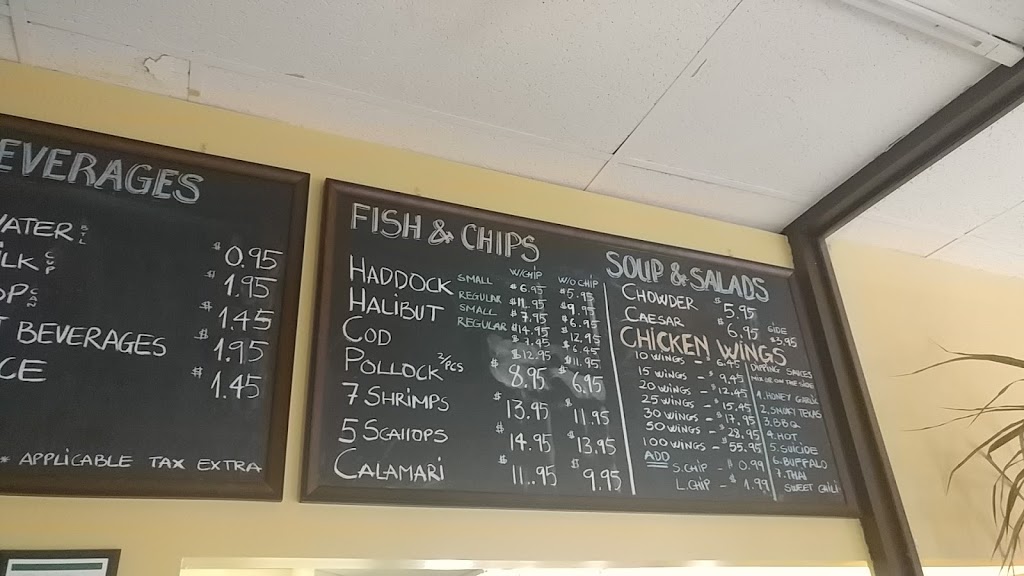 EVERAGES
WATER $0.95
ILK $1.95
OP $1.45
T BEVERAGES $1.95
CE $1.45
* APPLICABLE TAX EXTRA
FISH & CHIPS
W/CHIP W/O CHIP
HADDOCK SMALL $6.95 $5.95
REGULAR $11.95 $9.95
HALIBUT SMALL $7.95 $6.95
REGULAR $14.95 $12.95
COD
$12.95
POLLOCK 2/PCS 8.95 6.95
7 SHRIMPS $13.95 $11.95
5 SCALLOPS $14.95 $13.95
CALAMARI $11.95 $9.95
SOUP & SALADS
CHOWDER $5.95
CAESAR $6.95 SIDE $3.95
CHICKEN WINGS
10 WINGS - 6.45
15 WINGS - $9.45
20 WINGS - $12.45
25 WINGS - $15.45
30 WINGS - $17.95
50 WINGS - $28.95
100 WINGS - $55.95
ADD
S.CHIP - 0.99
L.CHIP - $1.99
DIPPING SAUCES
MIX OR ON THE SIDE
1. HONEY GARLIC
2. SMOKY TEXAS
3. BBQ
4. HOT
5. SUICIDE
6. BUFFALO
7. THAI
SWEET CHILI